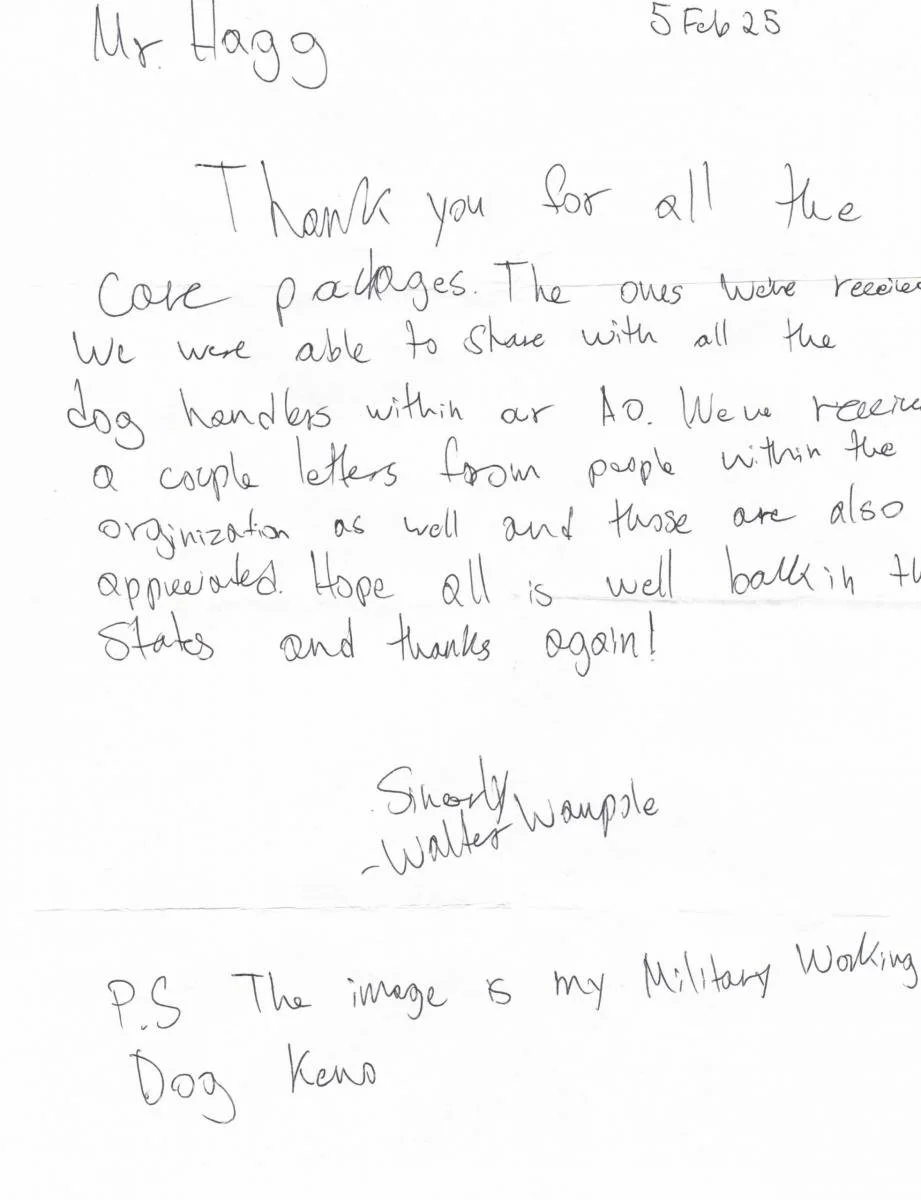 Mr. Hagg
5 Feb 25
Thank you for all the
Care packages. The ones we've receive
We were able to share with all the
dog handlers within our AO. We've receive
a couple letters from people within the
orginization as well and those are also
appreciated. Hope all is well back in th
States and thanks again!
Sincerly
-Walter Wampole
P.S The image is my Military Working
Dog Keno